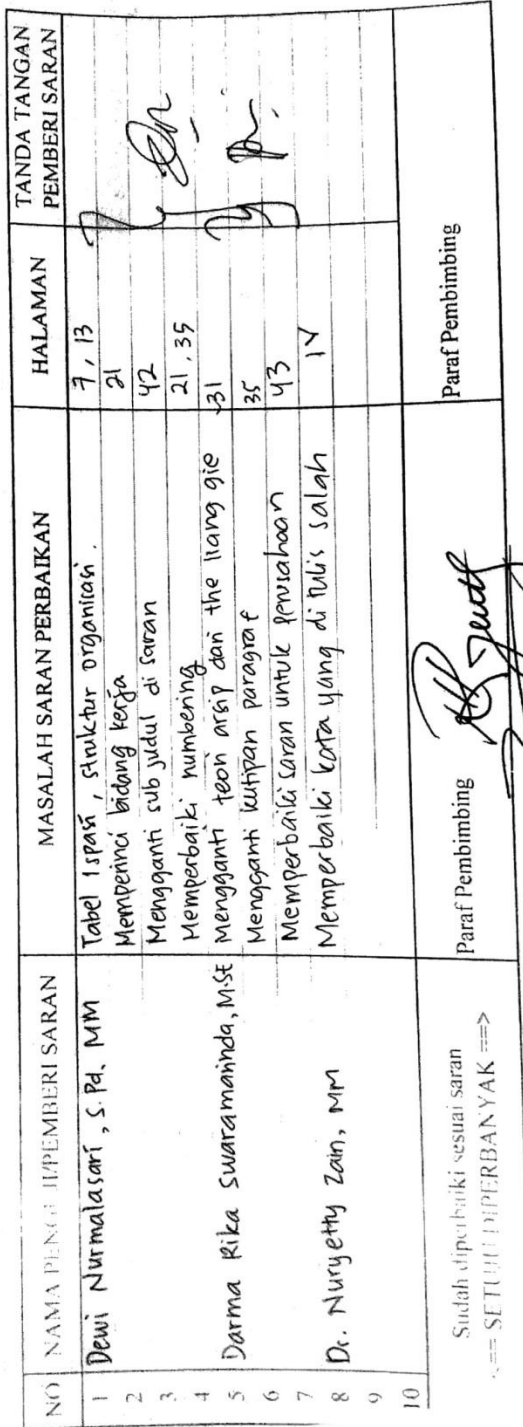 NO NAMA PENGUJI/PEMBERI SARAN MASALAH SARAN PERBAIKAN HALAMAN TANDA TANGAN PEMBERI SARAN
1 Dewi Nurmalasari, S.Pd, MM Tabel 1 spasi, struktur organisasi. 7, 13
2 Memperinci bidang kerja 21
3 Mengganti sub judul di saran 42
4 Memperbaiki numbering 21, 35
5 Darma Rika Swaramarinda, M.SE Mengganti teori arsip dari the liang gie 31
6 Mengganti kutipan paragraf 35
7 Memperbaiki saran untuk perusahaan 43
8 Dr. Nuryetty Zain, MM Memperbaiki kata yang di tulis salah IV
9
10
Sudah diperbaiki sesuai saran Paraf Pembimbing Paraf Pembimbing
<== SETUJU DIPERBANYAK ==>